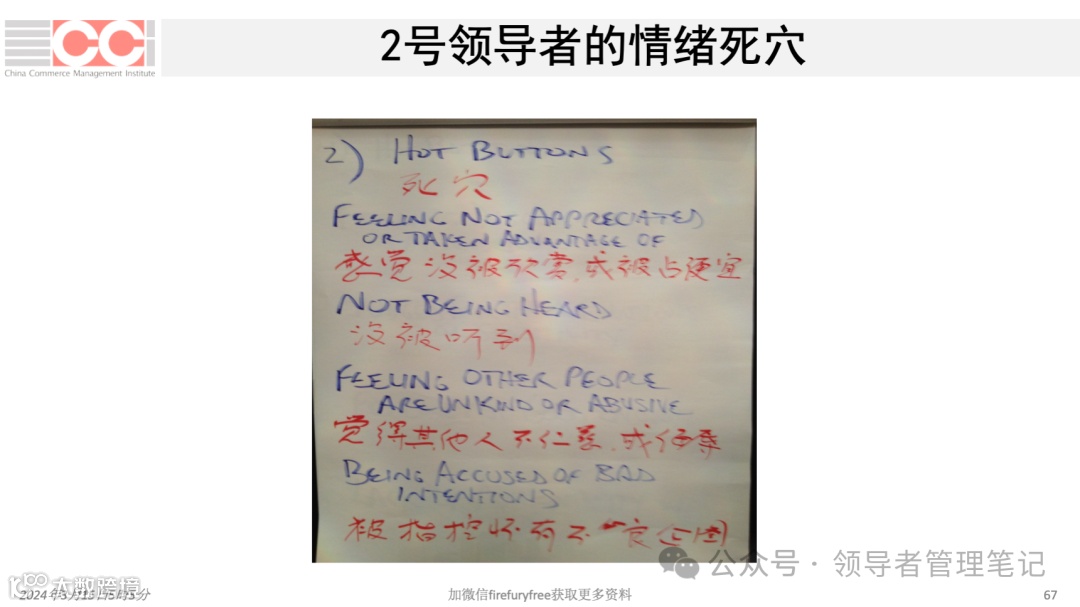 CCI
China Commerce Management Institute
2号领导者的情绪死穴
2) HOT BUTTONS
死穴
FEELING NOT APPRECIATED
OR TAKEN ADVANTAGE OF
感觉没被欣赏,或被占便宜
NOT BEING HEARD
没被听到
FEELING OTHER PEOPLE
ARE UNKIND OR ABUSIVE
觉得其他人不仁慈,或侮辱
BEING ACCUSED OF BAD
INTENTIONS
被指控怀有不良企图
公众号·领导者管理笔记
大数跨境
加微信firefuryfree获取更多资料
67